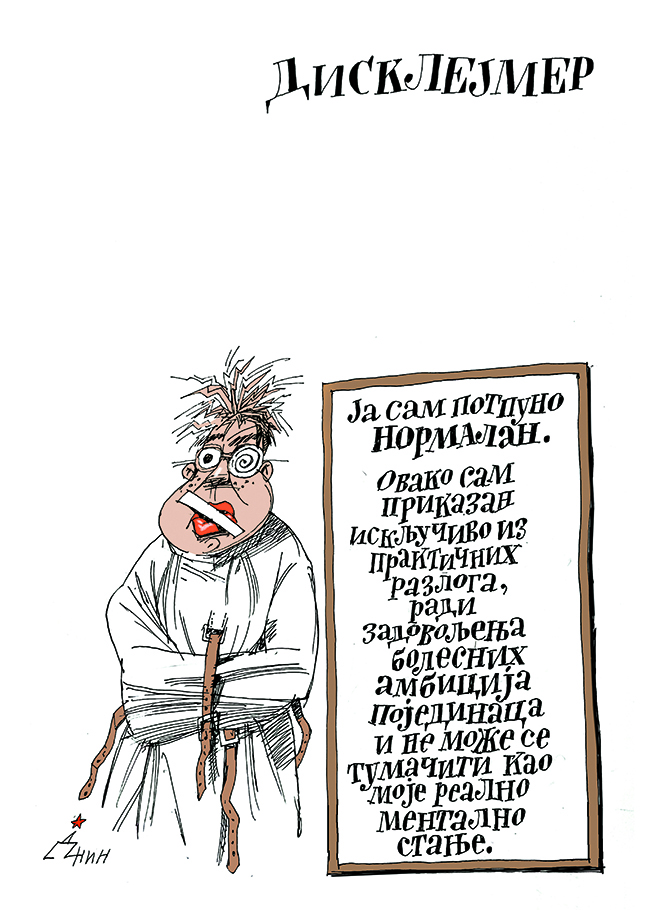 Дисклејмер
Ја сам потпуно
нормалан.
Овако сам
приказан
искључиво из
практичних
разлога,
ради
задовољења
болесних
амбиција
појединаца
и не може се
тумачити као
моје реално
ментално
стање.